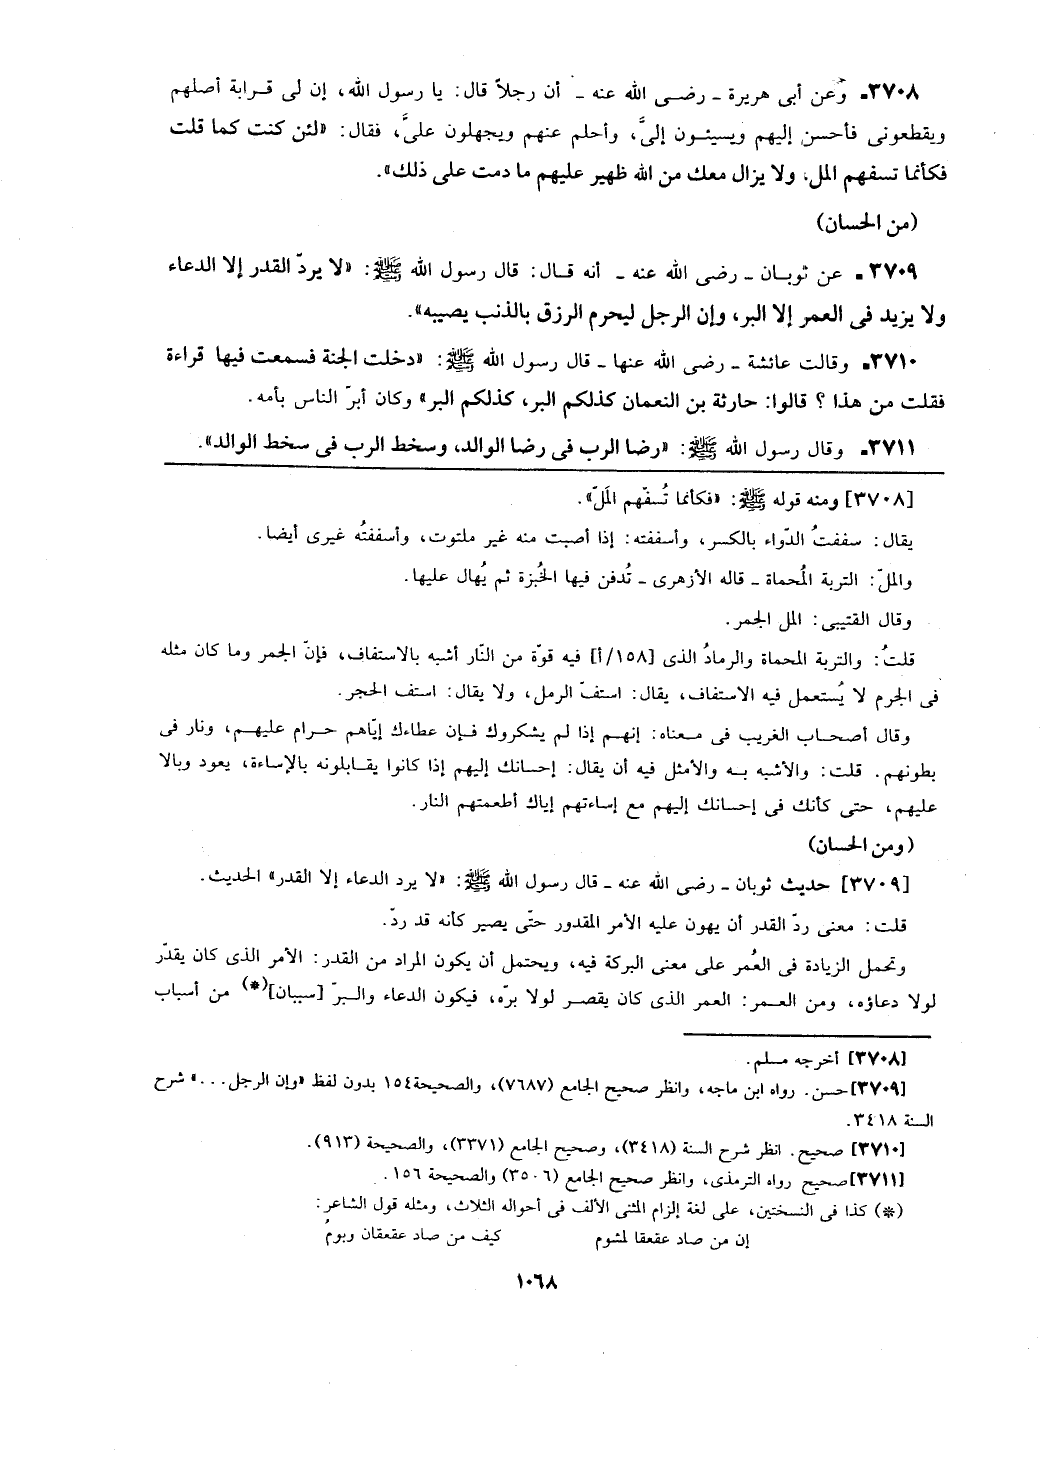 ٣٧٠٨ـ وعن أبى هريرة ـ رضى الله عنه ـ أن رجلاً قال: يا رسول الله، إن لى قرابة أصلهم
ويقطعونى فأحسن إليهم ويسيئون إلىَّ، وأحلم عنهم ويجهلون علىَّ، فقال: «لئن كنت كما قلت
فكأنما تسفهم المل، ولا يزال معك من الله ظهير عليهم ما دمت على ذلك».
(من الحسان)
٣٧٠٩ـ عن ثوبان ـ رضى الله عنه ـ أنه قال: قال رسول الله ﷺ: «لا يردّ القدر إلا الدعاء
ولا يزيد فى العمر إلا البر، وإن الرجل ليحرم الرزق بالذنب يصيبه».
٣٧١٠ـ وقالت عائشة ـ رضى الله عنها ـ قال رسول الله ﷺ: «دخلت الجنة فسمعت فيها قراءة
فقلت من هذا ؟ قالوا: حارثة بن النعمان كذلكم البر، كذلكم البر» وكان أبرّ الناس بأمه.
٣٧١١ـ وقال رسول الله ﷺ: «رضا الرب فى رضا الوالد، وسخط الرب فى سخط الوالد».
[٣٧٠٨] ومنه قوله ﷺ: «فكأنما تُسفّهم المَلّ».
يقال: سففتُ الدّواء بالكسر، وأسففته: إذا أصبت منه غير ملتوت، وأسففتُه غيرى أيضا.
والملّ: التربة المُحماة ـ قاله الأزهرى ـ تُدفن فيها الخُبزة ثم يُهال عليها.
وقال القتيبى: المل الجمر.
قلتُ: والتربة المحماة والرمادُ الذى [١٥٨/أ] فيه قوّة من النّار أشبه بالاستفاف، فإنّ الجمر وما كان مثله
فى الجرم لا يُستعمل فيه الاستفاف، يقال: استفّ الرمل، ولا يقال: استف الحجر.
وقال أصحاب الغريب فى معناه: إنهم إذا لم يشكروك فإن عطاءك إيّاهم حرام عليهم، ونار فى
بطونهم. قلت: والأشبه به والأمثل فيه أن يقال: إحسانك إليهم إذا كانوا يقابلونه بالإساءة، يعود وبالا
عليهم، حتى كأنك فى إحسانك إليهم مع إساءتهم إياك أطعمتهم النار.
(ومن الحسان)
[٣٧٠٩] حديث ثوبان ـ رضى الله عنه ـ قال رسول الله ﷺ: «لا يرد الدعاء إلا القدر» الحديث.
قلت: معنى ردّ القدر أن يهون عليه الأمر المقدور حتّى يصير كأنه قد ردّ.
وتحمل الزيادة فى العُمر على معنى البركة فيه، ويحتمل أن يكون المراد من القدر: الأمر الذى كان يقدّر
لولا دعاؤه، ومن العمر: العمر الذى كان يقصر لولا برّه، فيكون الدعاء والبرّ [سببان](*) من أسباب
[٣٧٠٨] أخرجه مسلم.
[٣٧٠٩] حسن. رواه ابن ماجه، وانظر صحيح الجامع (٧٦٨٧)، والصحيحة١٥٤ بدون لفظ «وإن الرجل...» شرح
السنة ٣٤١٨.
[٣٧١٠] صحيح. انظر شرح السنة (٣٤١٨)، وصحيح الجامع (٣٣٧١)، والصحيحة (٩١٣).
[٣٧١١] صحيح رواه الترمذى، وانظر صحيح الجامع (٣٥٠٦) والصحيحة ١٥٦.
(*) كذا فى النسختين، على لغة إلزام المثنى الألف فى أحواله الثلاث، ومثله قول الشاعر:
إن من صاد عقعقا لمشوم كيف من صاد عقعقان وبومُ
١٠٦٨